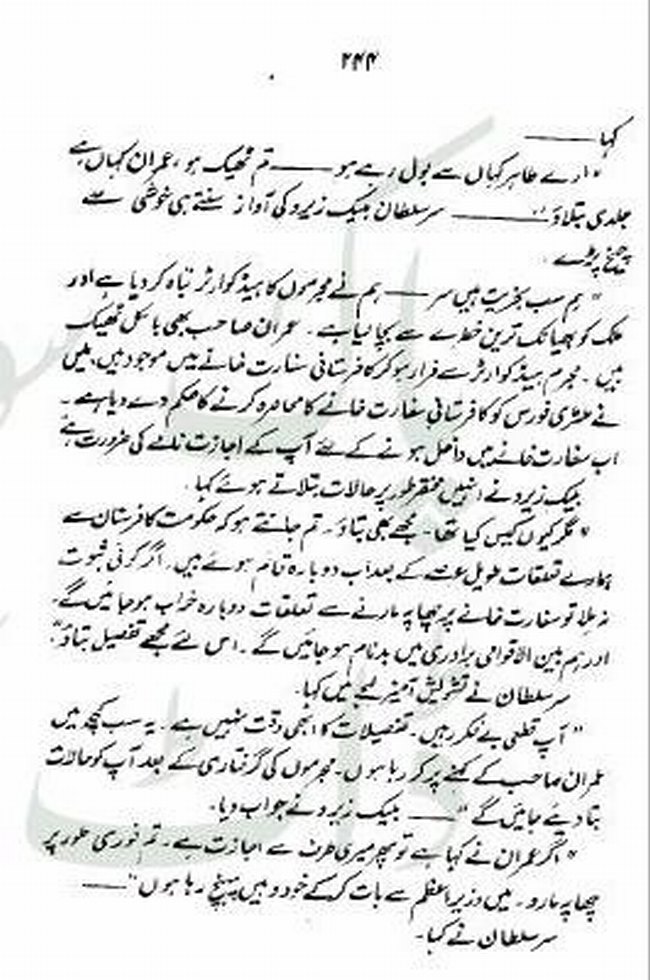 ۲۴۴
کہا ــــــــ
"ارے طاہر کہاں سے بول رہے ہو ــــــــ تم ٹھیک ہو، عمران کہاں ہے
جلدی بتلاؤ" ــــــــ سر سلطان بلیک زیرو کی آواز سنتے ہی خوشی سے
چیخ پڑے۔
"ہم سب بخیریت ہیں سر ــــــــ ہم نے مجرموں کا ہیڈ کوارٹر تباہ کر دیا ہے اور
ملک کو بھیانک ترین خطرے سے بچا لیا ہے۔ عمران صاحب بھی بالکل ٹھیک
ہیں۔ مجرم ہیڈ کوارٹر سے فرار ہو کر کافرستانی سفارت خانے میں موجود ہیں، میں
نے ملٹری فورس کو کافرستانی سفارت خانے کا محاصرہ کرنے کا حکم دے دیا ہے۔
اب سفارت خانے میں داخل ہونے کے لئے آپ کے اجازت نامے کی ضرورت ہے"
بلیک زیرو نے انہیں مختصر طور پر حالات بتلاتے ہوئے کہا۔
"مگر کیوں کیس کیا تھا۔ مجھے بھی بتاؤ۔ تم جانتے ہو کہ حکومت کافرستان سے
ہمارے تعلقات طویل عرصے کے بعد اب دوبارہ قائم ہوئے ہیں۔ اگر کوئی ثبوت
نہ ملا تو سفارت خانے پر چھاپہ مارنے سے تعلقات دوبارہ خراب ہو جائیں گے۔
اور ہم بین الاقوامی برادری میں بدنام ہو جائیں گے۔ اس لئے مجھے تفصیل بتاؤ"۔
سر سلطان نے تشویش آمیز لہجے میں کہا۔
"آپ قطعی بے فکر رہیں۔ تفصیلات کا ابھی وقت نہیں ہے۔ یہ سب کچھ میں
عمران صاحب کے کہنے پر کر رہا ہوں۔ مجرموں کی گرفتاری کے بعد آپ کو حالات
بتا دیئے جائیں گے" ــــــــ بلیک زیرو نے جواب دیا۔
"اگر عمران نے کہا ہے تو پھر میری طرف سے اجازت ہے۔ تم فوری طور پر
چھاپہ مارو۔ میں وزیر اعظم سے بات کر کے خود وہیں پہنچ رہا ہوں" ــــــــ
سر سلطان نے کہا۔